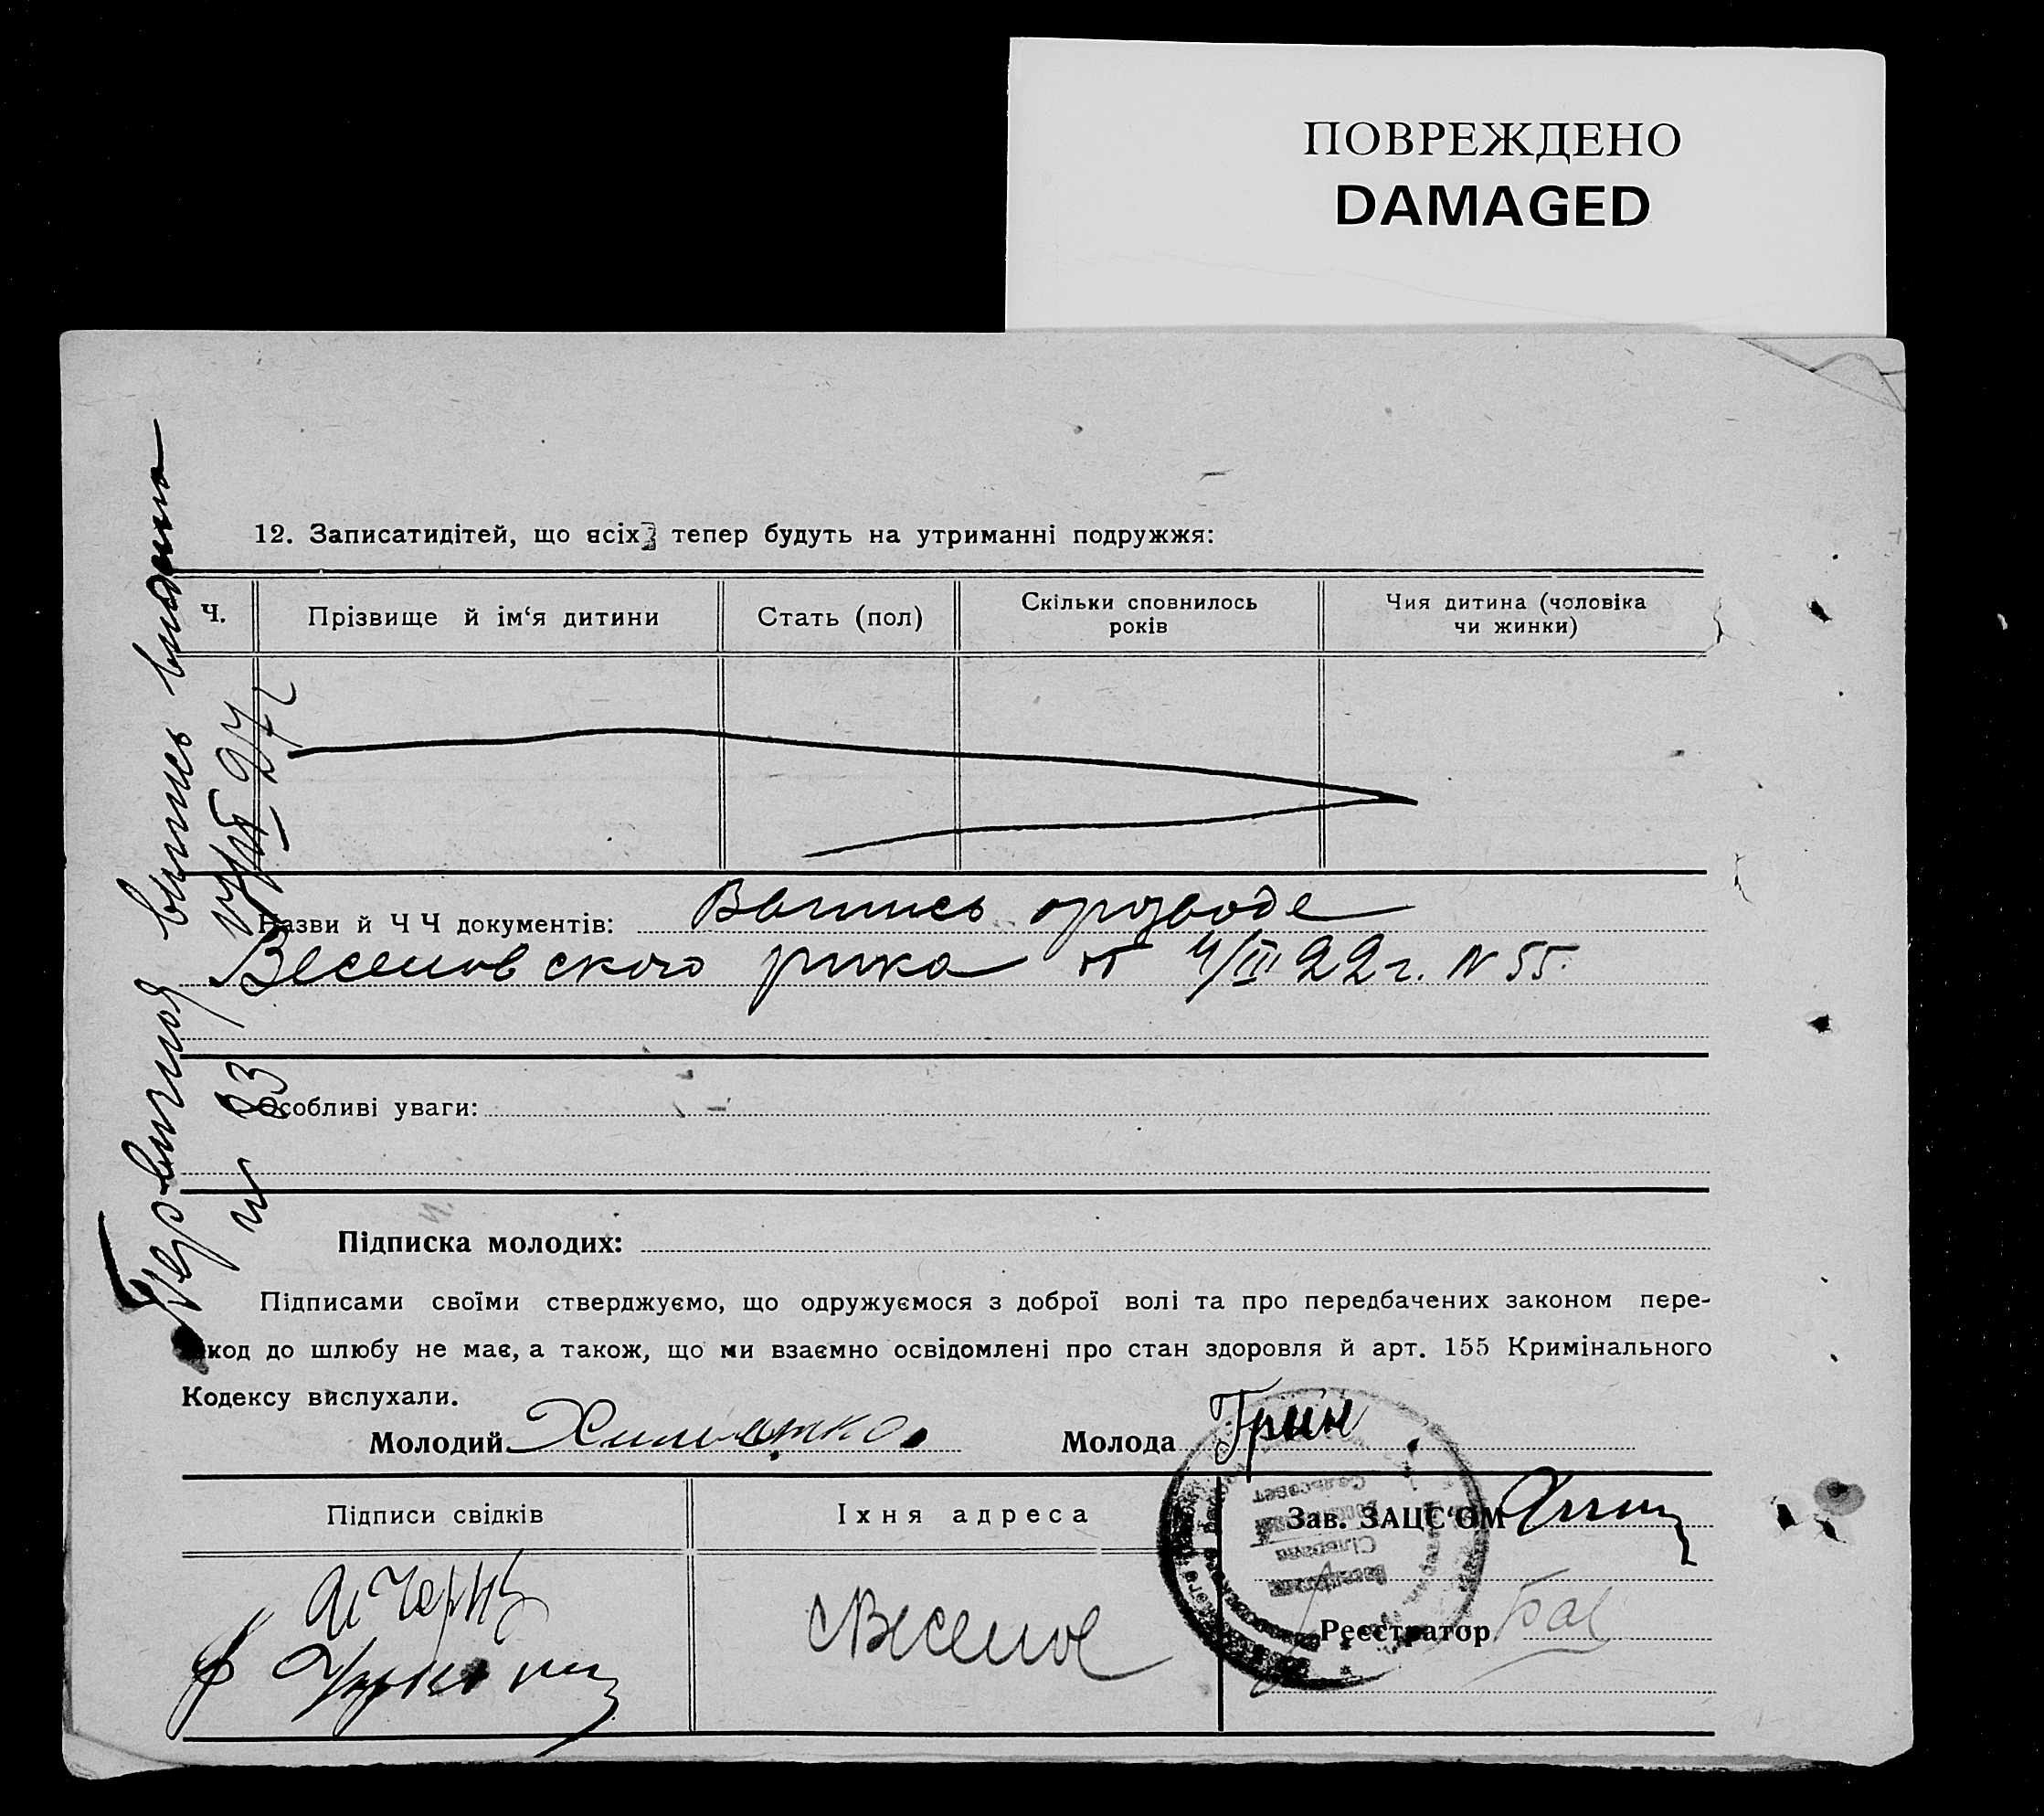 ПОВРЕЖДЕНО
DAMAGED
12. Записатидітей, що всіх тепер будуть на утриманні подружжя:
Ч.
Прізвище й ім‘я дитини
Стать (пол)
Скільки сповнилось
років
Чия дитина (чоловіка
чи жинки)
Первичная выпись выдана
№ 23
27
Назви й Ч Ч документів: Выпись о разводе
Веселовского рика от 4/III 22 г. N 55.
Особливі уваги:
Підписка молодих:
Підписами своїми стверджуємо, що одружуємося з доброї волі та про передбачених законом пере-
код до шлюбу не має, а також, що ми взаємно освідомлені про стан здоровля й арт. 155 Кримінального
Кодексу вислухали.
Молодий
Молода Грин
Підписи свідків
Іхня адреса
Зав. ЗАЦС‘ОМ
с Веселое
Реєстратор
Сельсовет
Сільрада